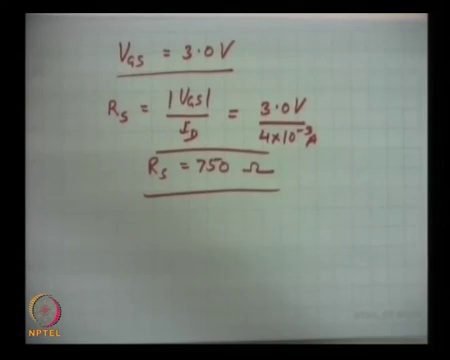 V_GS = 3.0 V
R_S = |V_GS| / I_D = 3.0 V / 4×10⁻³ A
R_S = 750 Ω
NPTEL